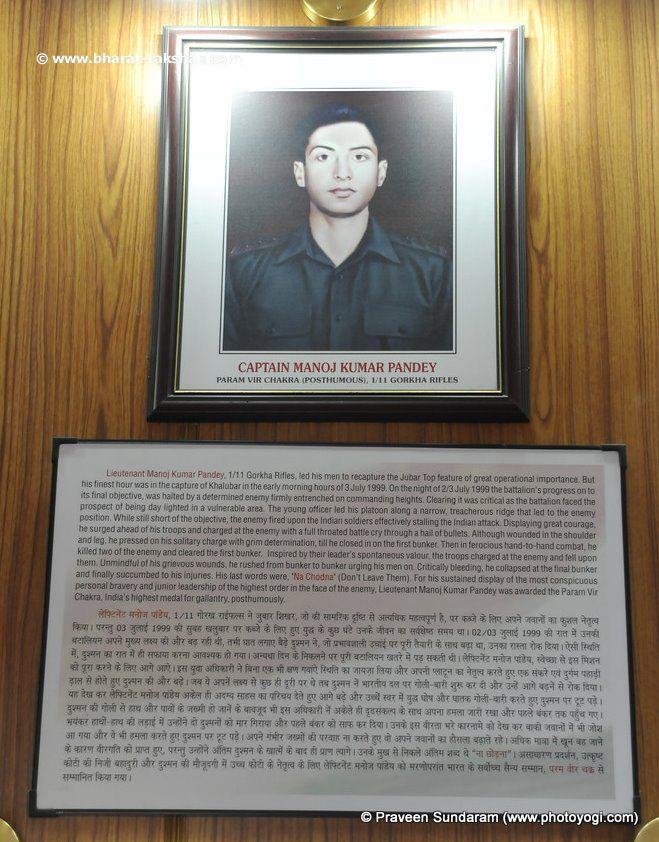 © www.bharat-rakshak.com
CAPTAIN MANOJ KUMAR PANDEY
PARAM VIR CHAKRA (POSTHUMOUS), 1/11 GORKHA RIFLES
Lieutenant Manoj Kumar Pandey, 1/11 Gorkha Rifles, led his men to recapture the Jubar Top feature of great operational importance. But
his finest hour was in the capture of Khalubar in the early morning hours of 3 July 1999. On the night of 2/3 July 1999 the battalion's progress on to
its final objective, was halted by a determined enemy firmly entrenched on commanding heights. Clearing it was critical as the battalion faced the
prospect of being day lighted in a vulnerable area. The young officer led his platoon along a narrow, treacherous ridge that led to the enemy
position. While still short of the objective, the enemy fired upon the Indian soldiers effectively stalling the Indian attack. Displaying great courage,
he surged ahead of his troops and charged at the enemy with a full throated battle cry through a hail of bullets. Although wounded in the shoulder
and leg, he pressed on his solitary charge with grim determination, till he closed in on the first bunker. Then in ferocious hand-to-hand combat, he
killed two of the enemy and cleared the first bunker. Inspired by their leader's spontaneous valour, the troops charged at the enemy and fell upon
them. Unmindful of his grievous wounds, he rushed from bunker to bunker urging his men on. Critically bleeding, he collapsed at the final bunker
and finally succumbed to his injuries. His last words were, 'Na Chodna' (Don't Leave Them). For his sustained display of the most conspicuous
personal bravery and junior leadership of the highest order in the face of the enemy, Lieutenant Manoj Kumar Pandey was awarded the Param Vir
Chakra, India's highest medal for gallantry, posthumously.
लेफ्टिनेंट मनोज पांडेय, 1/11 गोरख राईफल्स ने जुबार शिखर, जो की सामरिक दृष्टि से अत्यधिक महत्वपूर्ण है, पर कब्जे के लिए अपने जवानों का कुशल नेतृत्व
किया। परन्तु 03 जुलाई 1999 की सुबह खलुबार पर कब्जे के लिए हुए युद्ध के कुछ घंटे उनके जीवन का सर्वश्रेष्ठ समय था। 02/03 जुलाई 1999 की रात में उनकी
बटालियन अपने मुख्य लक्ष्य की और बढ़ रही थी, तभी घात लगाए बैठे दुश्मन ने, जो प्रभावशाली उचाई पर पूरी तैयारी के साथ बढ़ा था, उनका रास्ता रोक दिया। ऐसी स्थिति
में, दुश्मन का रात में ही सफाया करना आवश्यक हो गया। अन्यथा दिन के निकलने पर पूरी बटालियन खतरे में पड़ सकती थी। लेफ्टिनेंट मनोज पांडेय, स्वेच्छा से इस मिशन
को पूरा करने के लिए आगे आए। इस युवा अधिकारी ने बिना एक भी क्षण गवांए स्थिति का जायजा लिया और अपनी प्लाटून का नेतृत्व करते हुए एक संकरे एवं दुर्गम पहाड़ी
ढ़ाल से होते हुए दुश्मन की और बढ़े। जब वे अपने लक्ष्य से कुछ ही दूरी पर थे तब दुश्मन नें भारतीय दल पर गोली-बारी शुरू कर दी और उन्हें आगे बढ़नें से रोक दिया।
यह देख कर लेफ्टिनेंट मनोज पांडेय अकेले ही अदम्य साहस का परिचय देते हुए आगे बढ़े और उच्चें स्वर में युद्ध घोष और घातक गोली-बारी करते हुए दुश्मन पर टूट पड़े।
दुश्मन की गोली से हाथ और पावों के जख्मी हो जानें के बावजूद भी इस अधिकारी नें अकेले ही दृढसंकल्प के साथ अपना हमला जारी रखा और पहले बंकर तक पहुँच गए।
भयंकर हाथों-हाथ की लड़ाई में उन्होंनें दो दुश्मनों को मार गिराया और पहले बंकर को साफ कर दिया। उनके इस वीरता भरे कारनामे को देख कर बाकी जवानों में भी जोश
आ गया और वे भी हमला करते हुए दुश्मन पर टूट पड़े। अपने गंभीर जख्मों की परवाह ना करते हुए वो अपने जवानों का हौसला बढ़ाते रहे। अधिक मात्रा में खून बह जाने
के कारण वीरगति को प्राप्त हुए, परन्तु उन्होंने अंतिम दुश्मन के खात्में के बाद ही प्राण त्यागे। उनके मुख से निकले अंतिम शब्द थे "ना छोड़ना"। असाधारण प्रदर्शन, उत्कृष्ट
कोटी की निजी बहादुरी और दुश्मन की मौजूदगी में उच्च कोटी के नेतृत्व के लिए लेफ्टिनेंट मनोज पांडेय को मरणोपरांत भारत के सर्वोच्च सैन्य सम्मान, परम वीर चक्र से
सम्मानित किया गया।
© Praveen Sundaram (www.photoyogi.com)